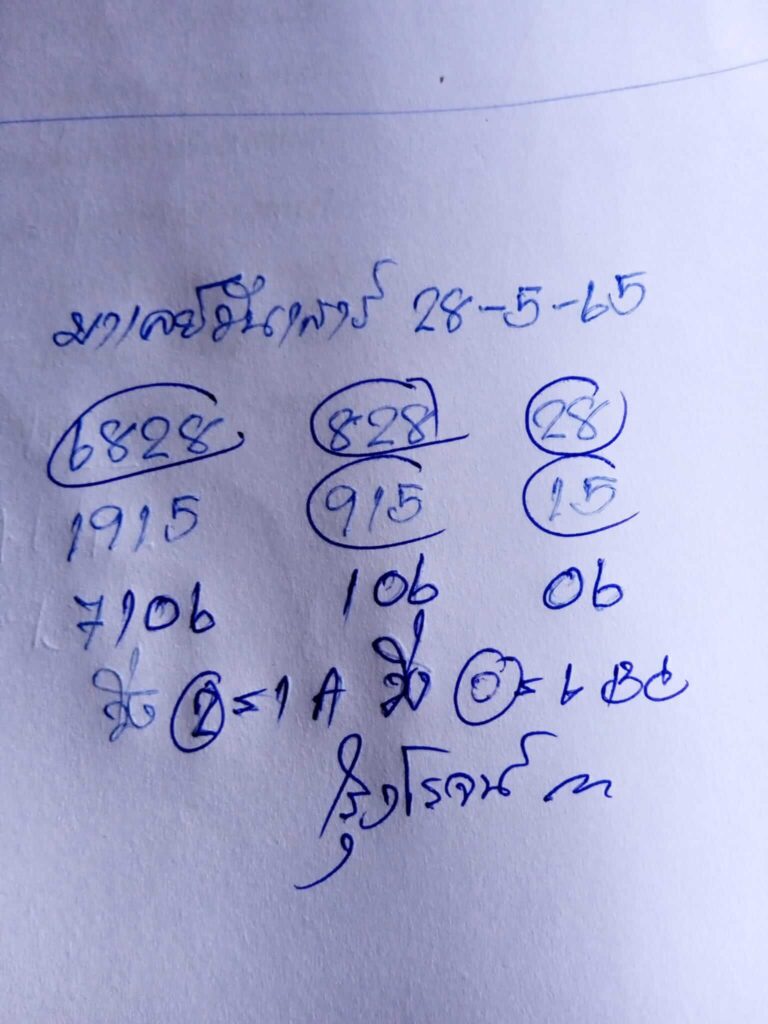 มาเลย์วันเสาร์ 28-5-65
6828 828 28
1915 915 15
7106 106 06
วิ่ง 2=1 A วิ่ง 0=6 BC
รุ่งโรจน์